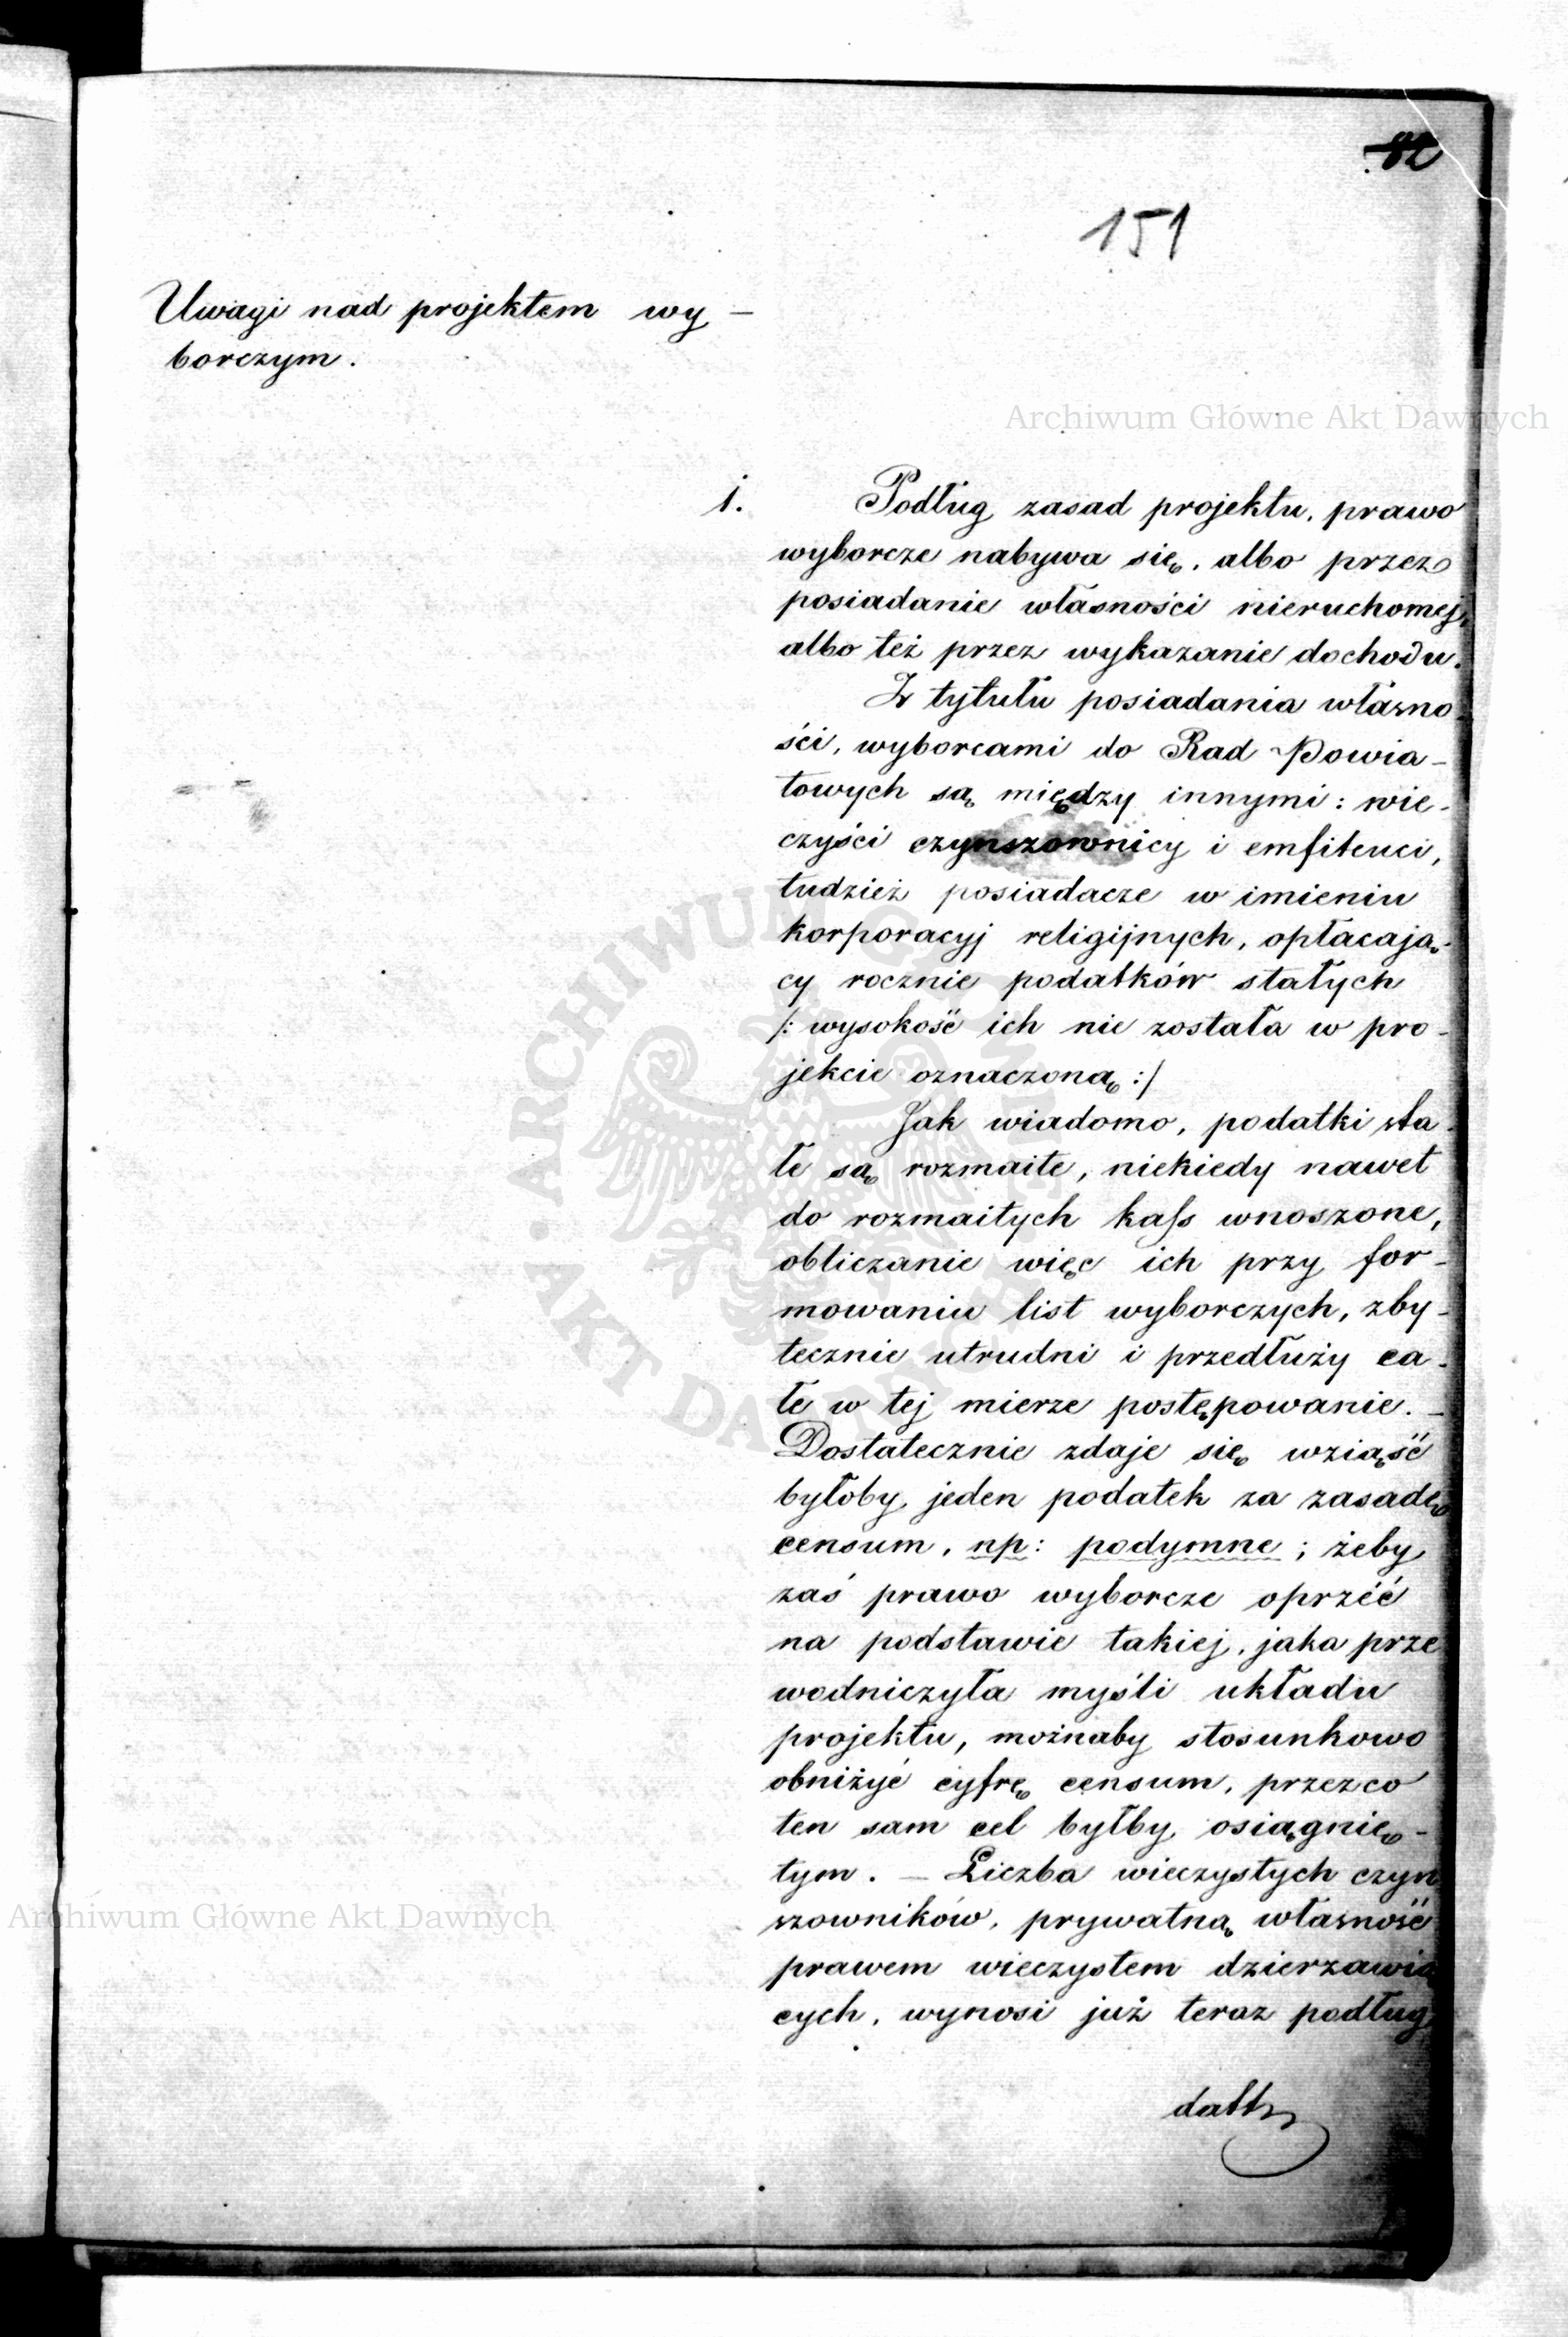 151
Uwagi nad projektem wy-
borczym.
Archiwum Główne Akt Dawnych
1. Podług zasad projektu, prawo
wyborcze nabywa się, albo przez
posiadanie własności nieruchomej,
albo też przez wykazanie dochodu.
Z tytułu posiadania własno-
ści, wyborcami do Rad Powia-
towych są między innymi: wie-
czyści czynszownicy i emfiteuci,
tudzież posiadacze w imieniu
korporacyj religijnych, opłacają-
cy rocznie podatków stałych
/: wysokość ich nie została w pro-
jekcie oznaczoną :/
Jak wiadomo, podatki sta-
łe są rozmaite, niekiedy nawet
do rozmaitych kass wnoszone,
obliczanie więc ich przy for-
mowaniu list wyborczych, zby-
tecznie utrudni i przedłuży ca-
łe w tej mierze postępowanie. -
Dostatecznie zdaje się wziąść
byłoby jeden podatek za zasadę
censum, np: podymne; żeby
zaś prawo wyborcze oprzéć
na podstawie takiej, jaka prze
wodniczyła myśli układu
projektu, możnaby stosunkowo
obniżyć cyfrę censum, przez co
ten sam cel byłby osiągnię-
tym. — Liczba wieczystych czyn
szowników, prywatną własność
prawem wieczystem dzierzawią
cych, wynosi już teraz podług
Archiwum Główne Akt Dawnych
ARCHIWUM GŁÓWNE AKT DAWNYCH